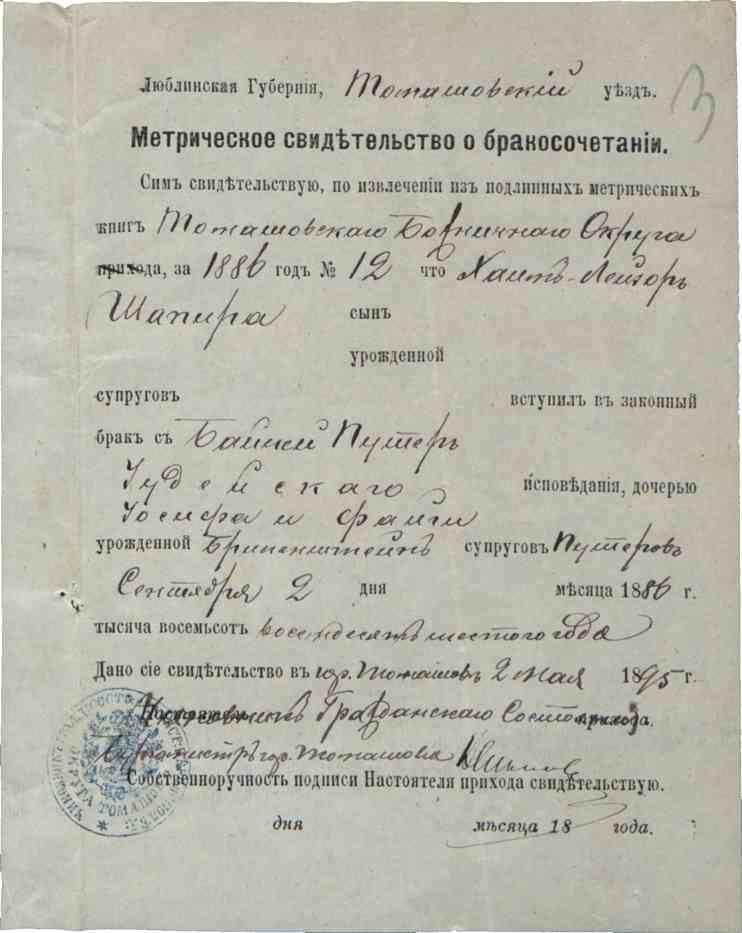 3
Люблинская Губернія, Томашовскій уѣздъ.
Метрическое свидѣтельство о бракосочетаніи.
Симъ свидѣтельствую, по извлеченіи изъ подлинныхъ метрическихъ
книгъ Томашовскаго Божничнаго Округа
прихода, за 1886 годъ № 12 что Хаимъ-Лейзоръ
Шапира сынъ
урожденной
супруговъ вступилъ въ законный
бракъ съ Байлей Путеръ
Іудейскаго исповѣданія, дочерью
Іосифа и Файги
урожденной супруговъ Путеровъ
Сентября 2 дня мѣсяца 1886 г.
тысяча восемьсотъ восемдесятъ шестого года
Дано сіе свидѣтельство въ гор. Томашовъ 2 мая 1895 г.
Настоятель Чиновникъ Гражданскаго Состоянія прихода.
Бургомистръ гор. Томашова
Собственноручность подписи Настоятеля прихода свидѣтельствую.
дня мѣсяца 18 года.